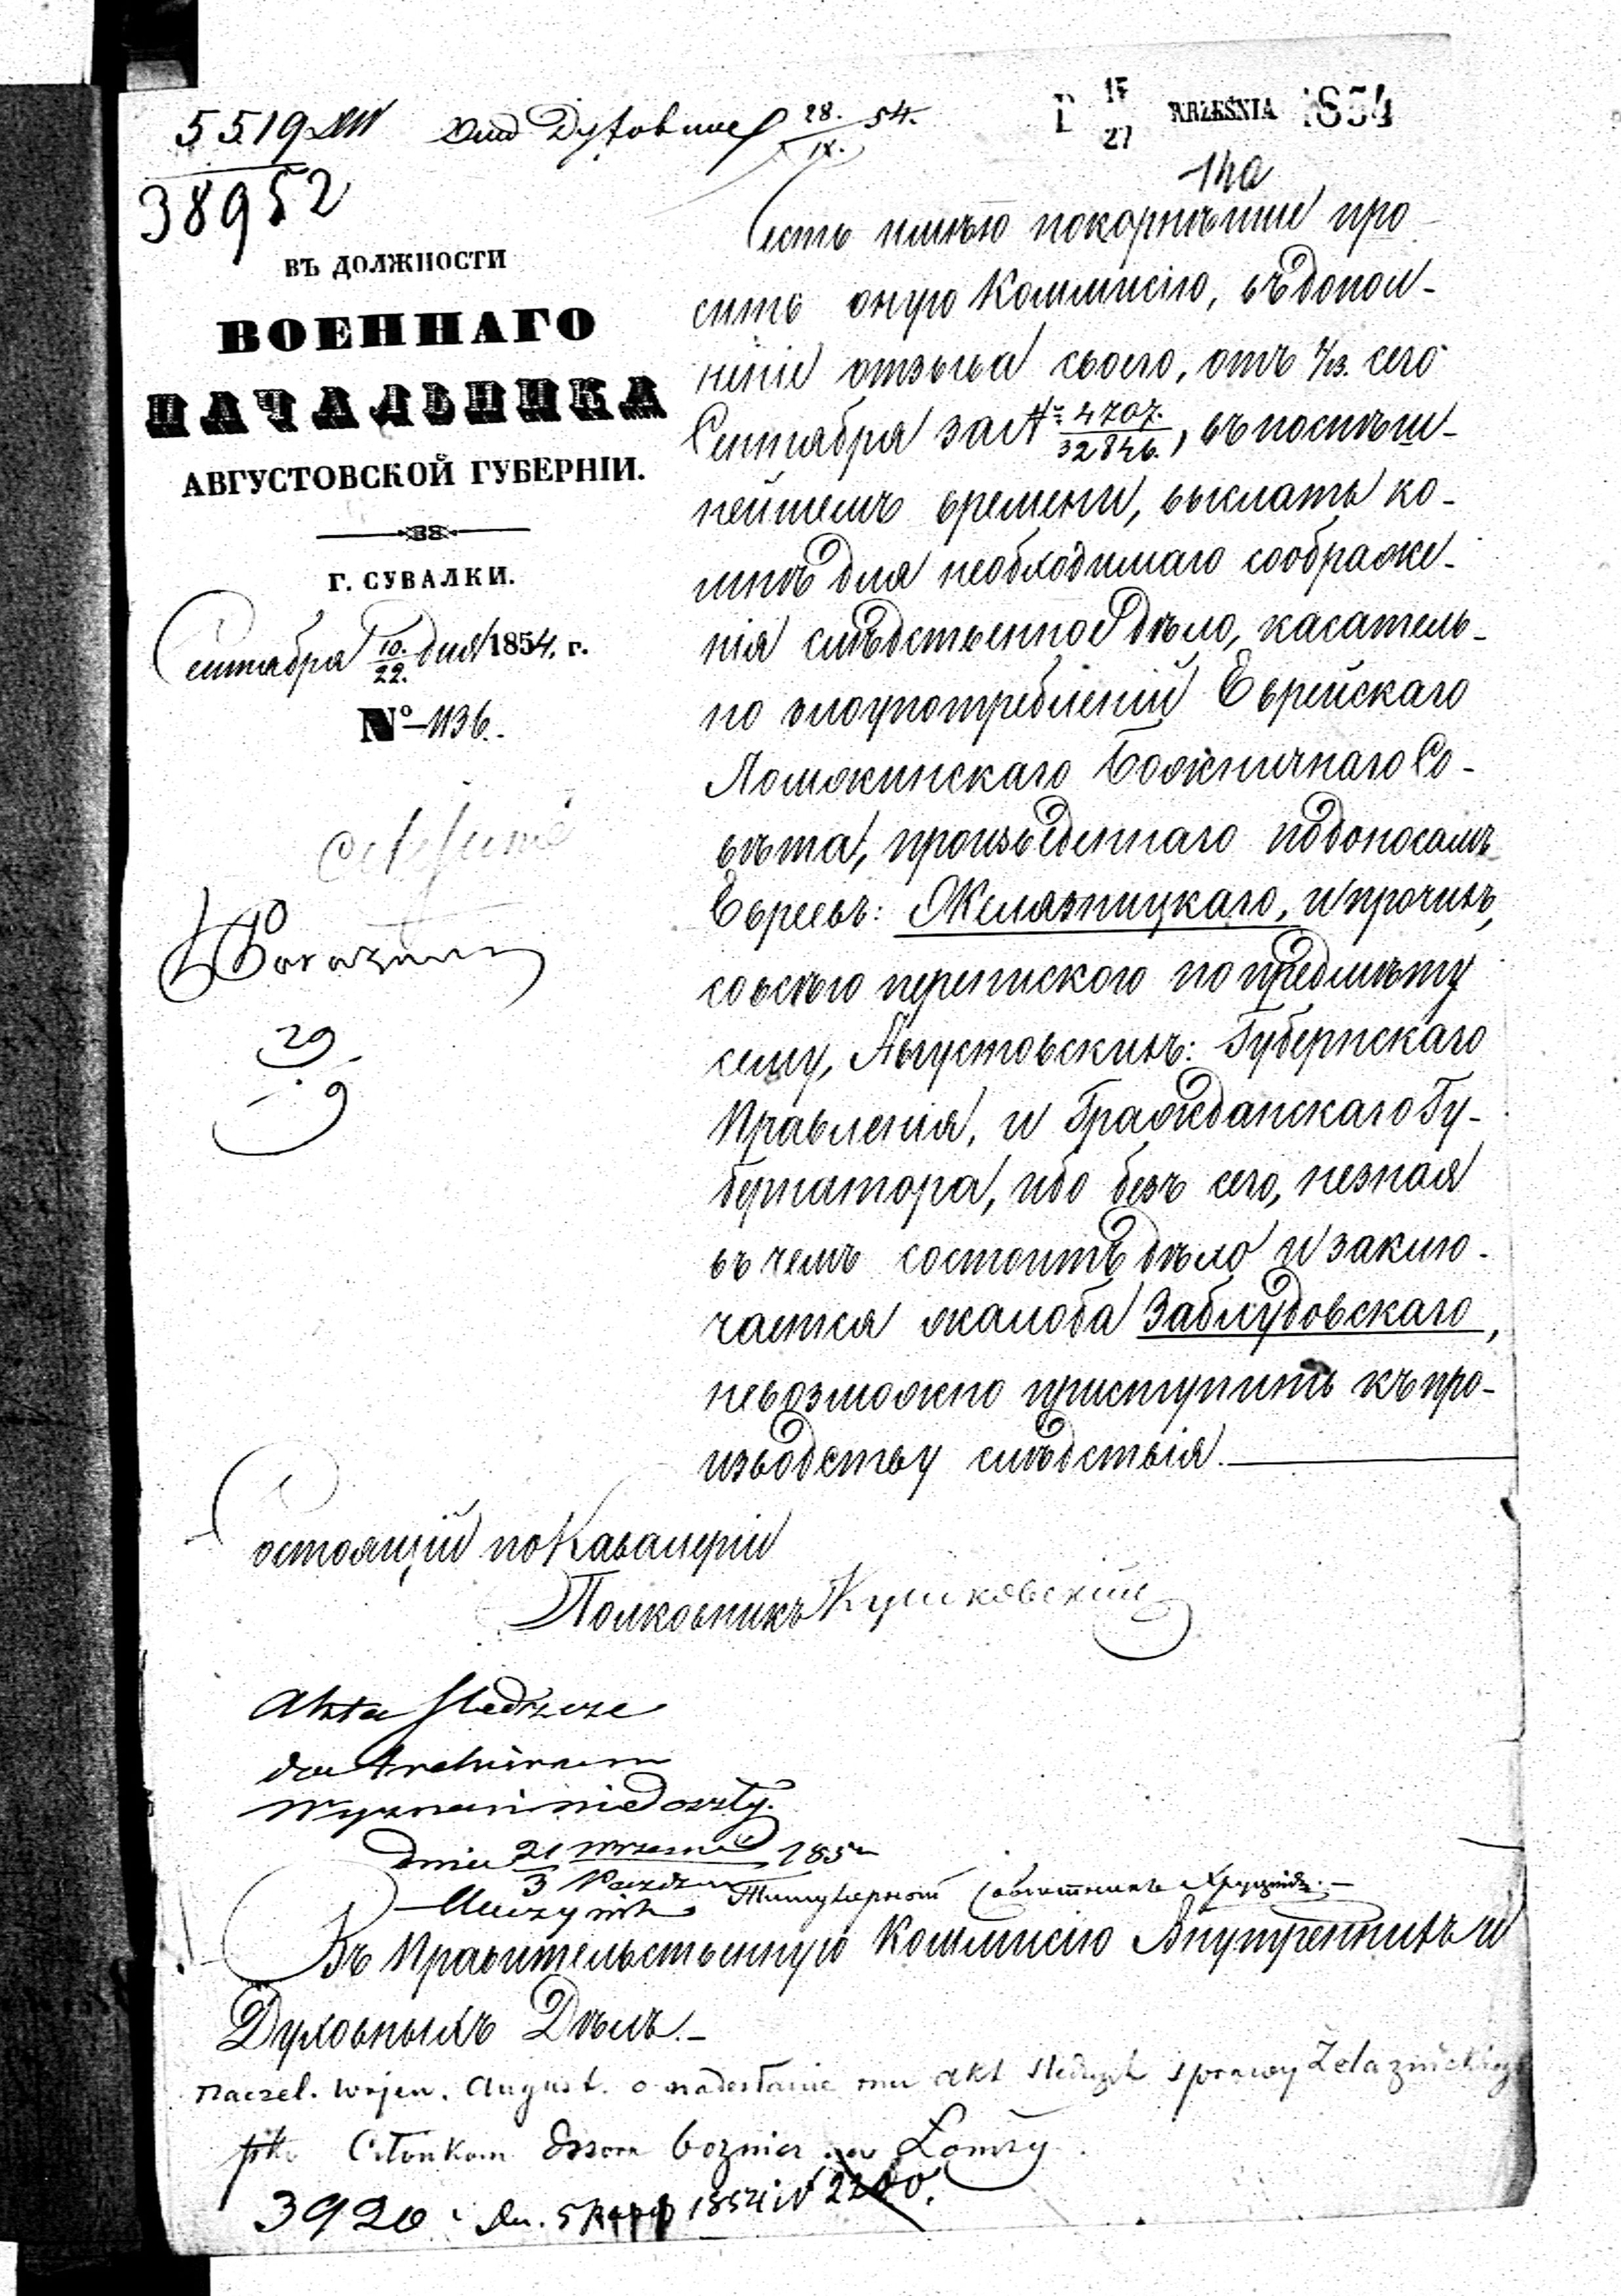 5519
38952
28. 54.
IX.
15
27 WRZEŚNIA 1854
ВЪ ДОЛЖНОСТИ
ВОЕННАГО
НАЧАЛЬНИКА
АВГУСТОВСКОЙ ГУБЕРНІИ.
Г. СУВАЛКИ.
Сентября 10./22. дня 1854. г.
№ 1136.
29
9
Честь имѣю покорнѣйше про-
сить оную Коммисію, въ допол-
неніе отзыва своего, отъ 1/13. сего
Сентября за № 4707./32846., въ поспѣш-
нейшемъ времени, выслать ко-
мнѣ для необходимаго соображе-
нія слѣдственное дѣло, касатель-
но злоупотребленій Еврейскаго
Ломжинскаго Божничнаго Со-
вѣта, произведеннаго по доносамъ
Евреевъ: Желязницкаго, и прочихъ,
со всѣю перепискою по предмѣту
сему, Августовскихъ: Губернскаго
Правленія, и Гражданскаго Гу-
бернатора, ибо безъ сего, незная
въ чемъ состоитъ дѣло и заклю-
чается жалоба Заблудовскаго,
невозможно приступить къ про-
изводству слѣдствія.
Состоящій по Кавалеріи
Полковникъ
Akta śledcze
do Archiwum
Wyznań niedoszły.
dnia 21 Września/3 Paźdz 185
Титулярный Совѣтникъ
Въ Правительственную Коммисію Внутреннихъ и
Духовныхъ Дѣлъ.
Naczel. Wojen. August. o nadesłanie mu akt śledczych sprawy Żelaznickiego
pko Członkom Dozoru bożnicz. w Łomży.
3920 1854